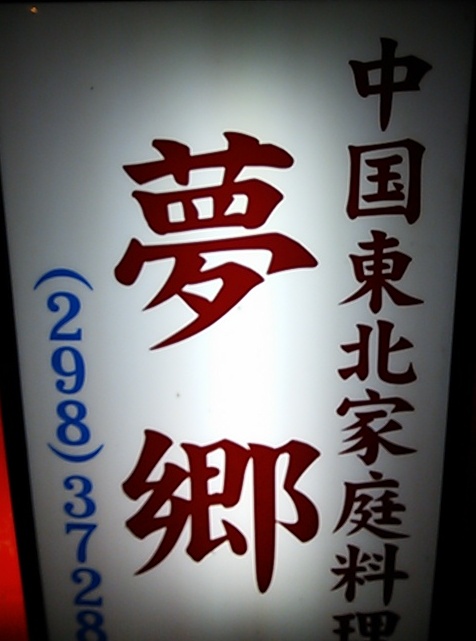 中国東北家庭料理
夢郷
(298)3728